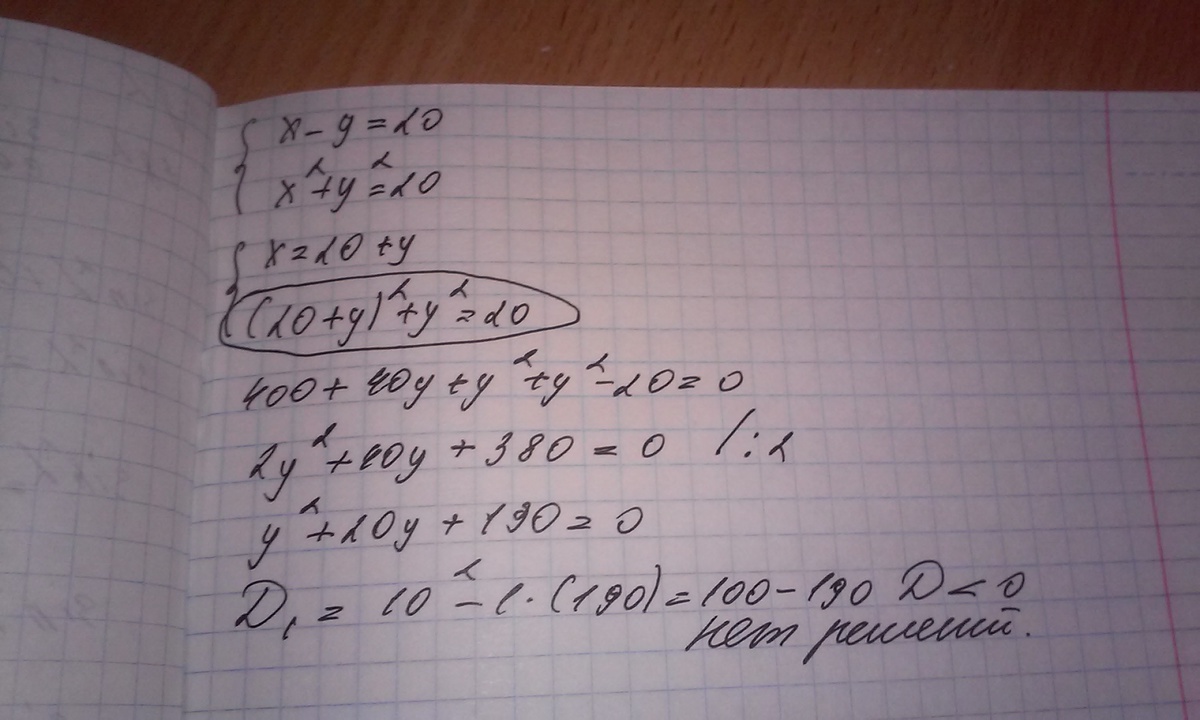 x - y = 20
x² + y² = 20
x = 20 + y
(20 + y)² + y² = 20
400 + 40y + y² + y² - 20 = 0
2y² + 40y + 380 = 0 /:2
y² + 20y + 190 = 0
D₁ = 10² - 1·(190) = 100 - 190 D < 0
нет решений.